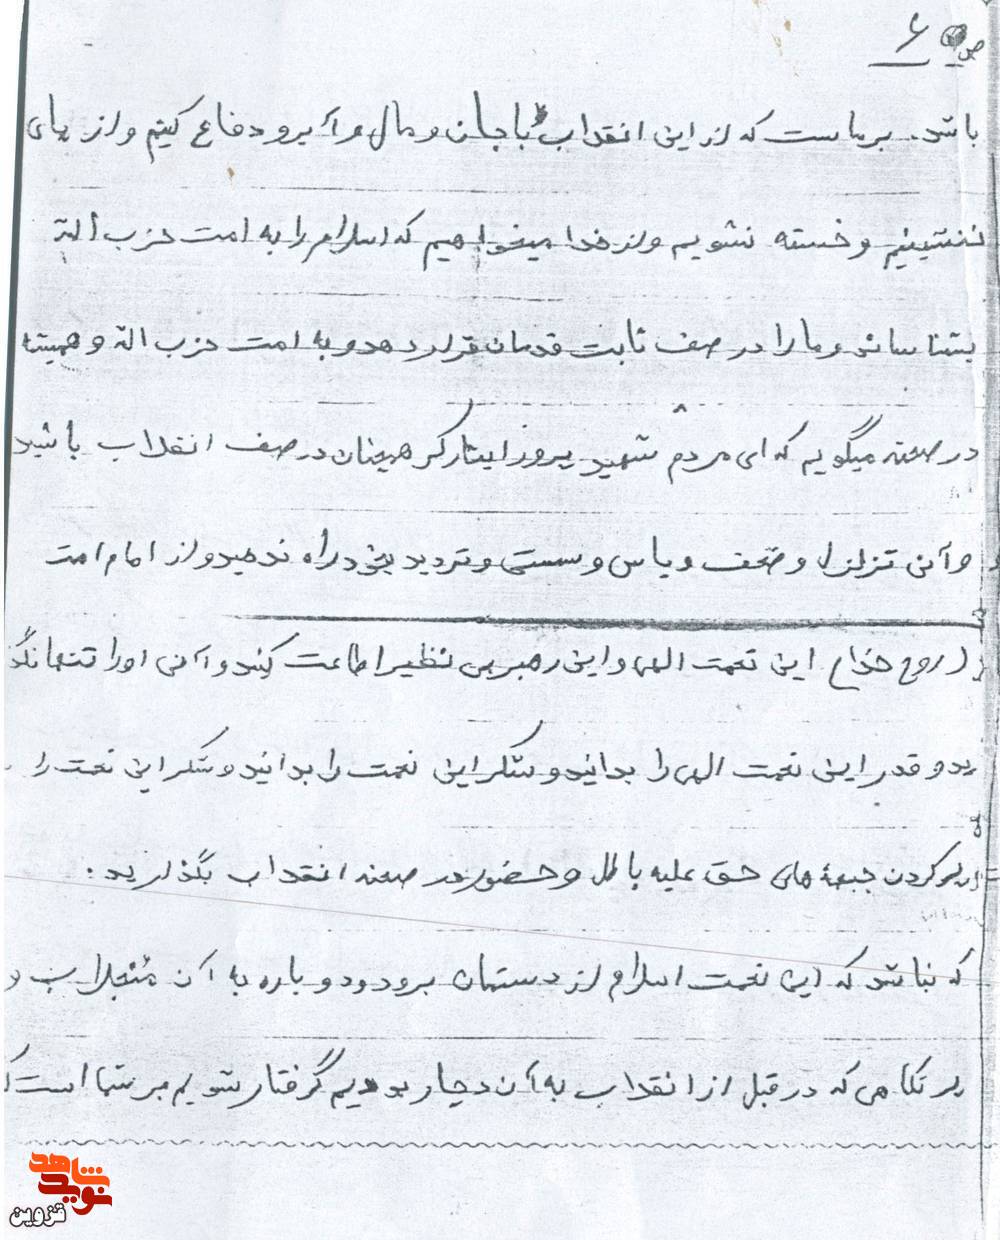 ص ۶
باشد. برماست که از این انقلاب با جان و مال و آبرو دفاع کنیم و از پای
ننشینیم و خسته نشویم و از خدا میخواهیم که اسلام را به امت حزب الله
بشناساند و ما را در صف ثابت قدمان قرار دهد و به امت حزب الله و همیشه
در صحنه میگویم که ای مردم شهید پرور ایثارگر همچنان در صف انقلاب باشید
و آنی تزلزل و ضعف و یاس و سستی و تردید بخود راه ندهید و از امام امت
(روح خدا) این نعمت الهی و این رهبر بی نظیر اطاعت کنید و آنی او را تنها نگذ
رید و قدر این نعمت الهی را بدانید و شکر این نعمت را بدانید و شکر این نعمت را
پر کردن جبهه های حق علیه باطل و حضور در صحنه انقلاب بگذارید:
که نباشد که این نعمت اسلام از دستمان برود و دوباره به آن منجلاب و
که در قبل از انقلاب به آن دچار بودیم گرفتار شویم بر شما است ک
نوید شاهد
قزوین